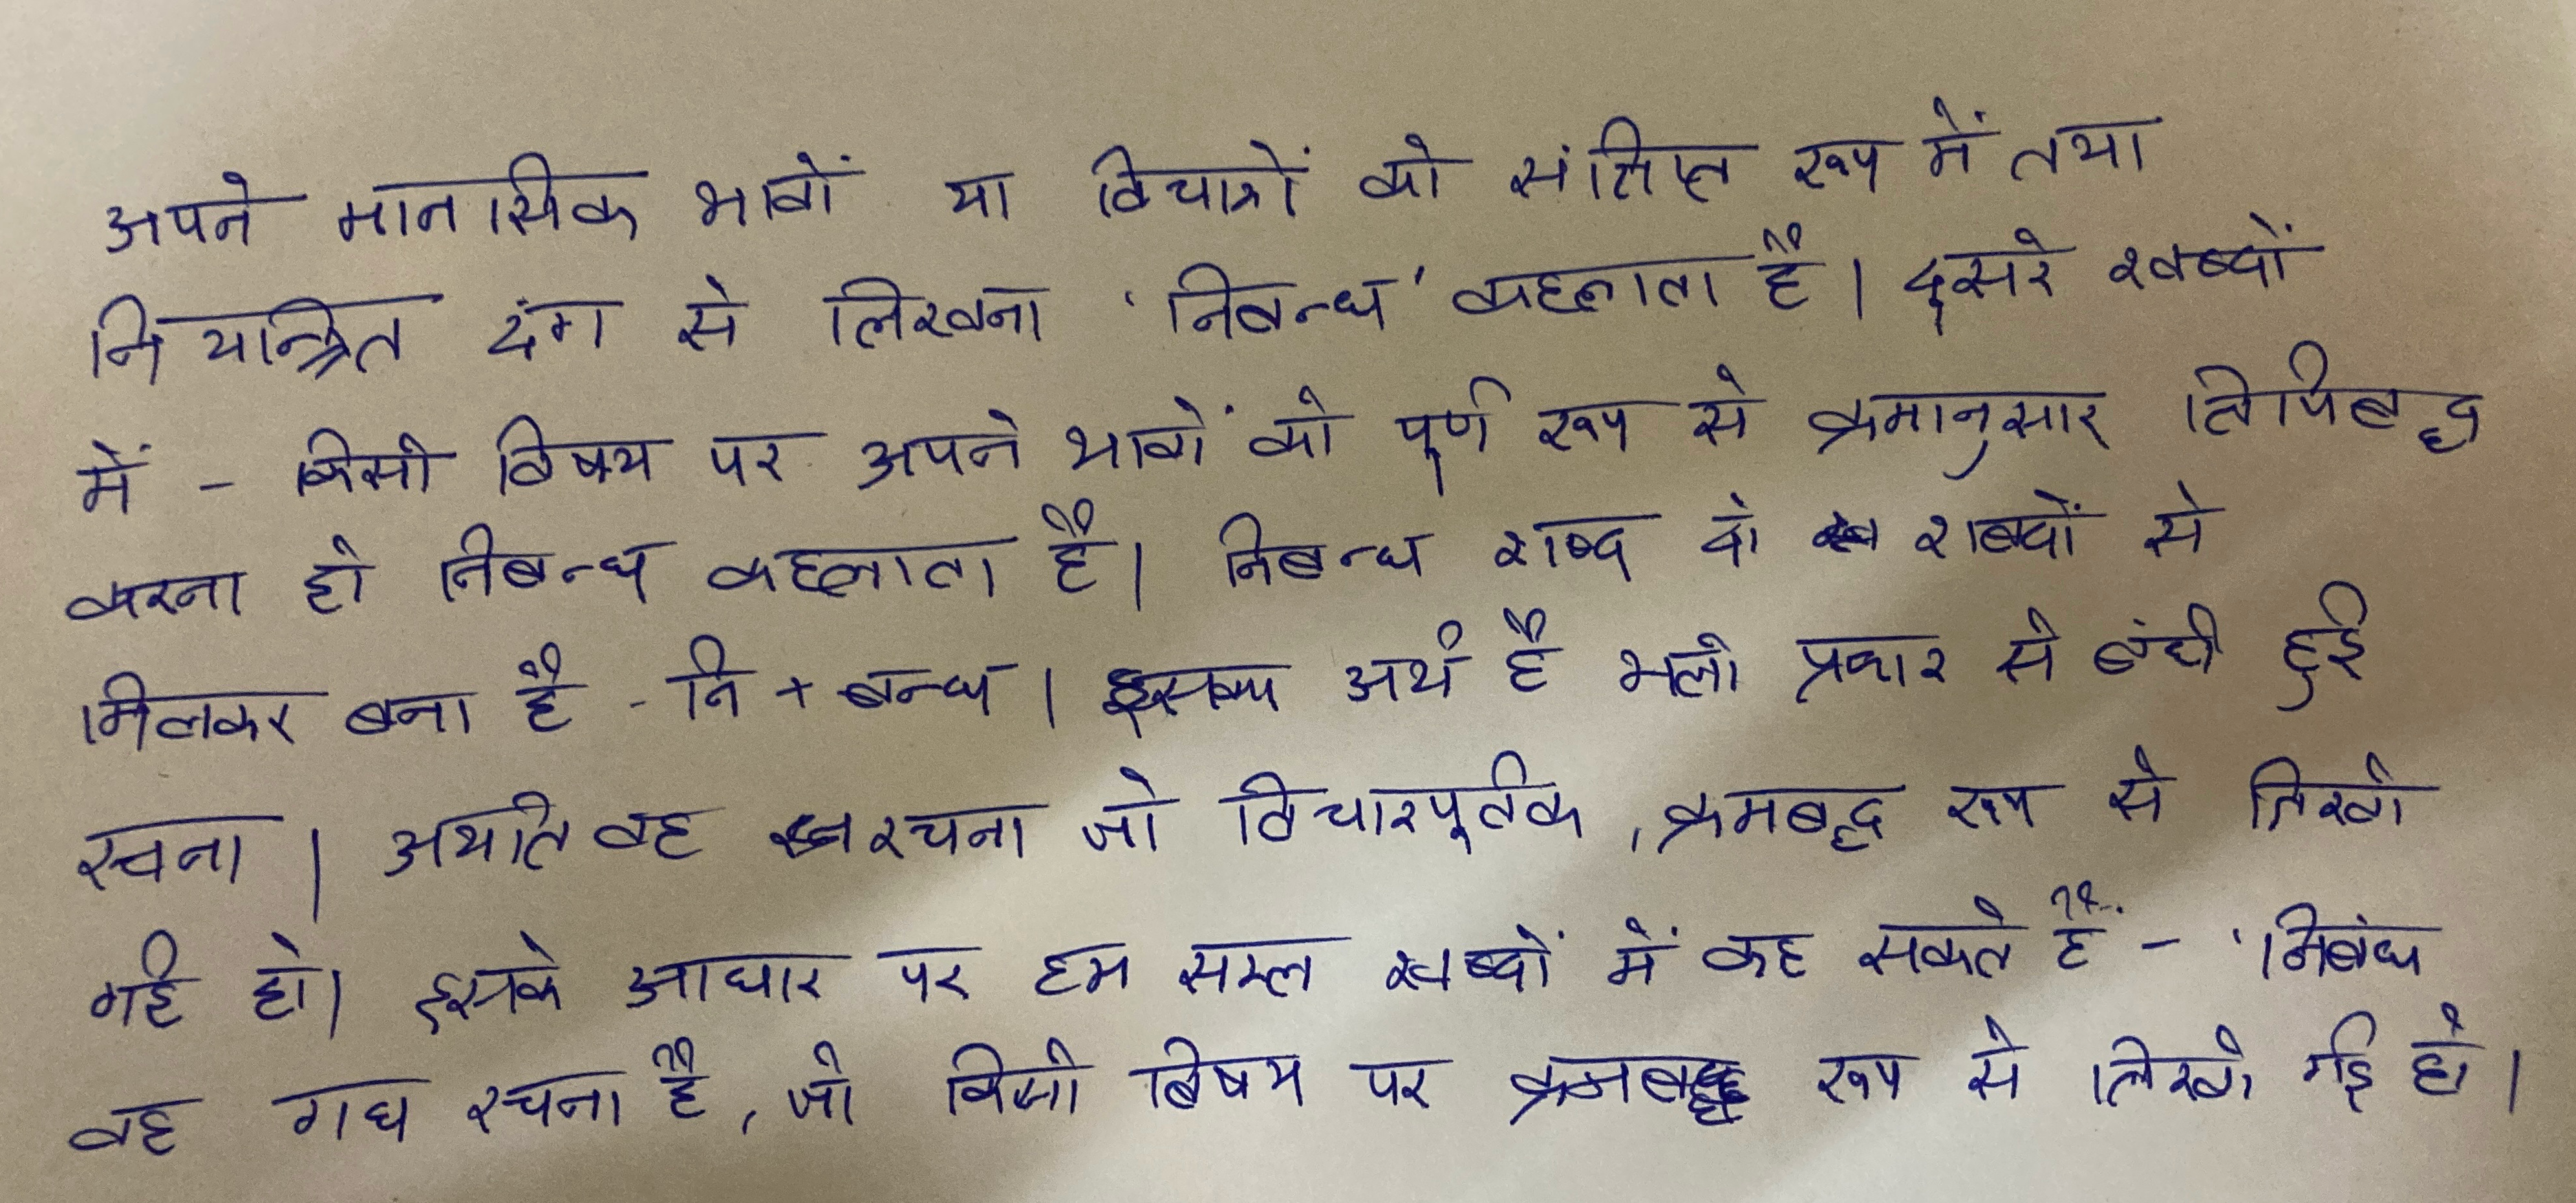 अपने मानसिक भावों या विचारों को संक्षिप्त रूप में तथा
नियन्त्रित ढंग से लिखना 'निबन्ध' कहलाता है। दूसरे शब्दों
में - किसी विषय पर अपने भावों को पूर्ण रूप से क्रमानुसार लिपिबद्ध
करना ही निबन्ध कहलाता है। निबन्ध शब्द दो शब्दों से
मिलकर बना है - नि + बन्ध। इसका अर्थ है भली प्रकार से बंधी हुई
रचना। अर्थात वह रचना जो विचारपूर्वक, क्रमबद्ध रूप से लिखी
गई हो। इसके आधार पर हम सरल शब्दों में कह सकते हैं - 'निबंध
वह गद्य रचना है, जो किसी विषय पर क्रमबद्ध रूप से लिखी गई हो।